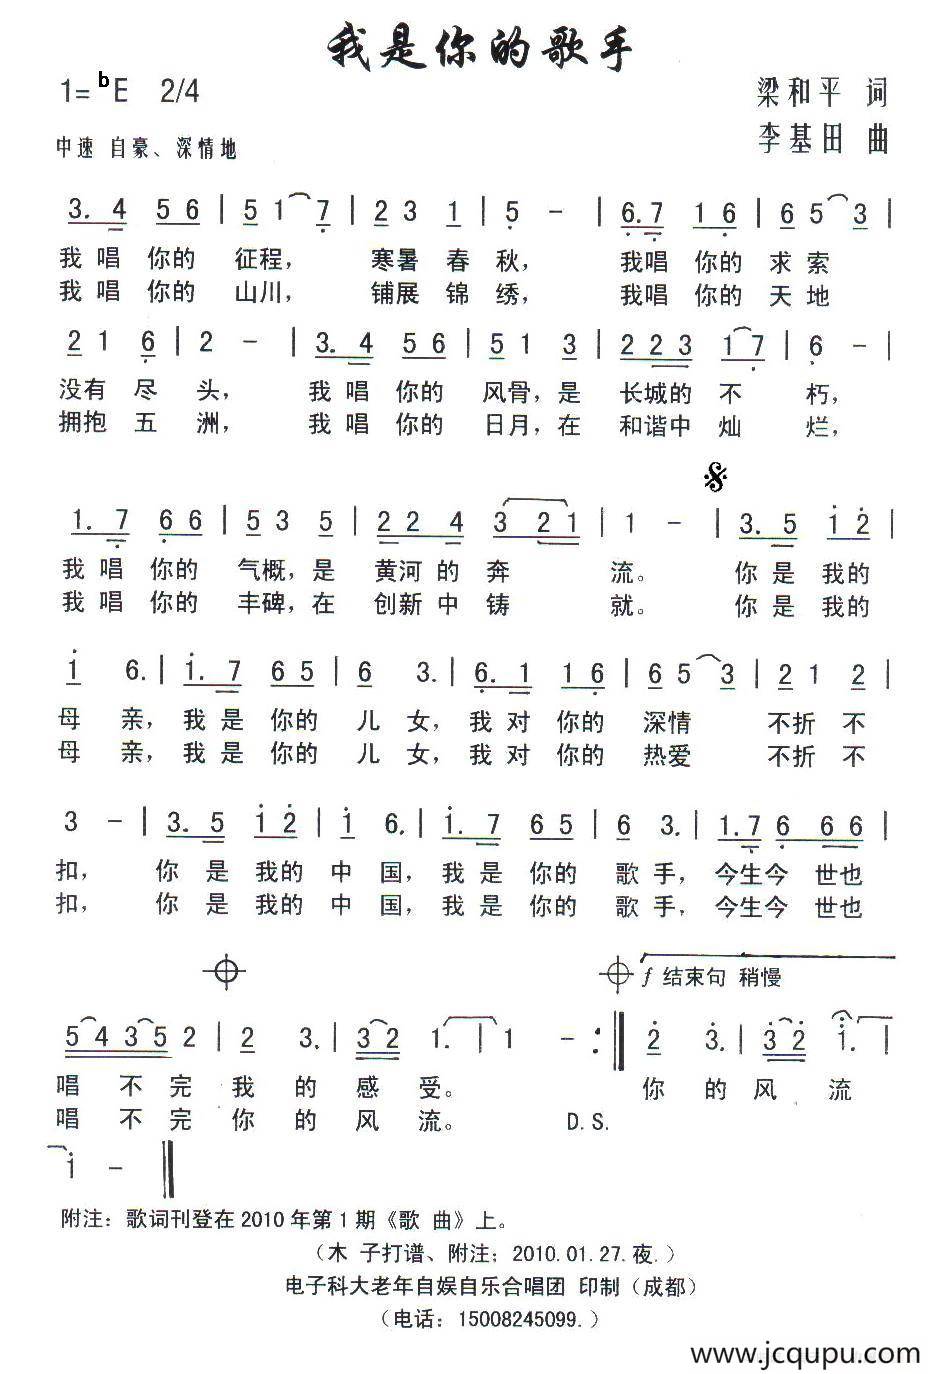 我是你的歌手
1=ᵇE 2/4 梁和平 词
中速 自豪、深情地 李基田 曲
3. 4 5 6 | 5 1 7 | 2 3 1 | 5 - | 6.7 1 6 | 6 5 3 |
我 唱 你的 征程， 寒暑 春 秋， 我唱 你的 求 索
我 唱 你的 山川， 铺展 锦 绣， 我唱 你的 天 地
2 1 6 | 2 - | 3. 4 5 6 | 5 1 3 | 2 2 3 1 7 | 6 - |
没有 尽 头， 我 唱 你的 风骨，是 长城的 不 朽，
拥抱 五 洲， 我 唱 你的 日月，在 和谐中 灿 烂，
1. 7 6 6 | 5 3 5 | 2 2 4 3 2 1 | 1 - | 3. 5 1 2 |
我 唱 你的 气概，是 黄河 的 奔 流。 你 是 我的
我 唱 你的 丰碑，在 创新 中 铸 就。 你 是 我的
1 6. | 1. 7 6 5 | 6 3. | 6. 1 1 6 | 6 5 3 | 2 1 2 |
母 亲，我 是 你的 儿 女，我 对 你的 深情 不折 不
母 亲，我 是 你的 儿 女，我 对 你的 热爱 不折 不
3 - | 3. 5 1 2 | 1 6. | 1. 7 6 5 | 6 3. | 1.7 6 6 6 |
扣， 你 是 我的 中 国，我 是 你的 歌 手，今生今 世也
扣， 你 是 我的 中 国，我 是 你的 歌 手，今生今 世也
f 结束句 稍慢
5 4 3 5 2 | 2 3. | 3 2 1. | 1 - :‖ 2 3. | 3 2 1. |
唱 不 完 我 的 感 受。 你 的 风 流
唱 不 完 你 的 风 流。 D.S.
1 - ‖
附注：歌词刊登在2010年第1期《歌 曲》上。
（木 子打谱、附注；2010.01.27.夜.）
电子科大老年自娱自乐合唱团 印制（成都）
（电话：15008245099.）
www.jcqupu.com